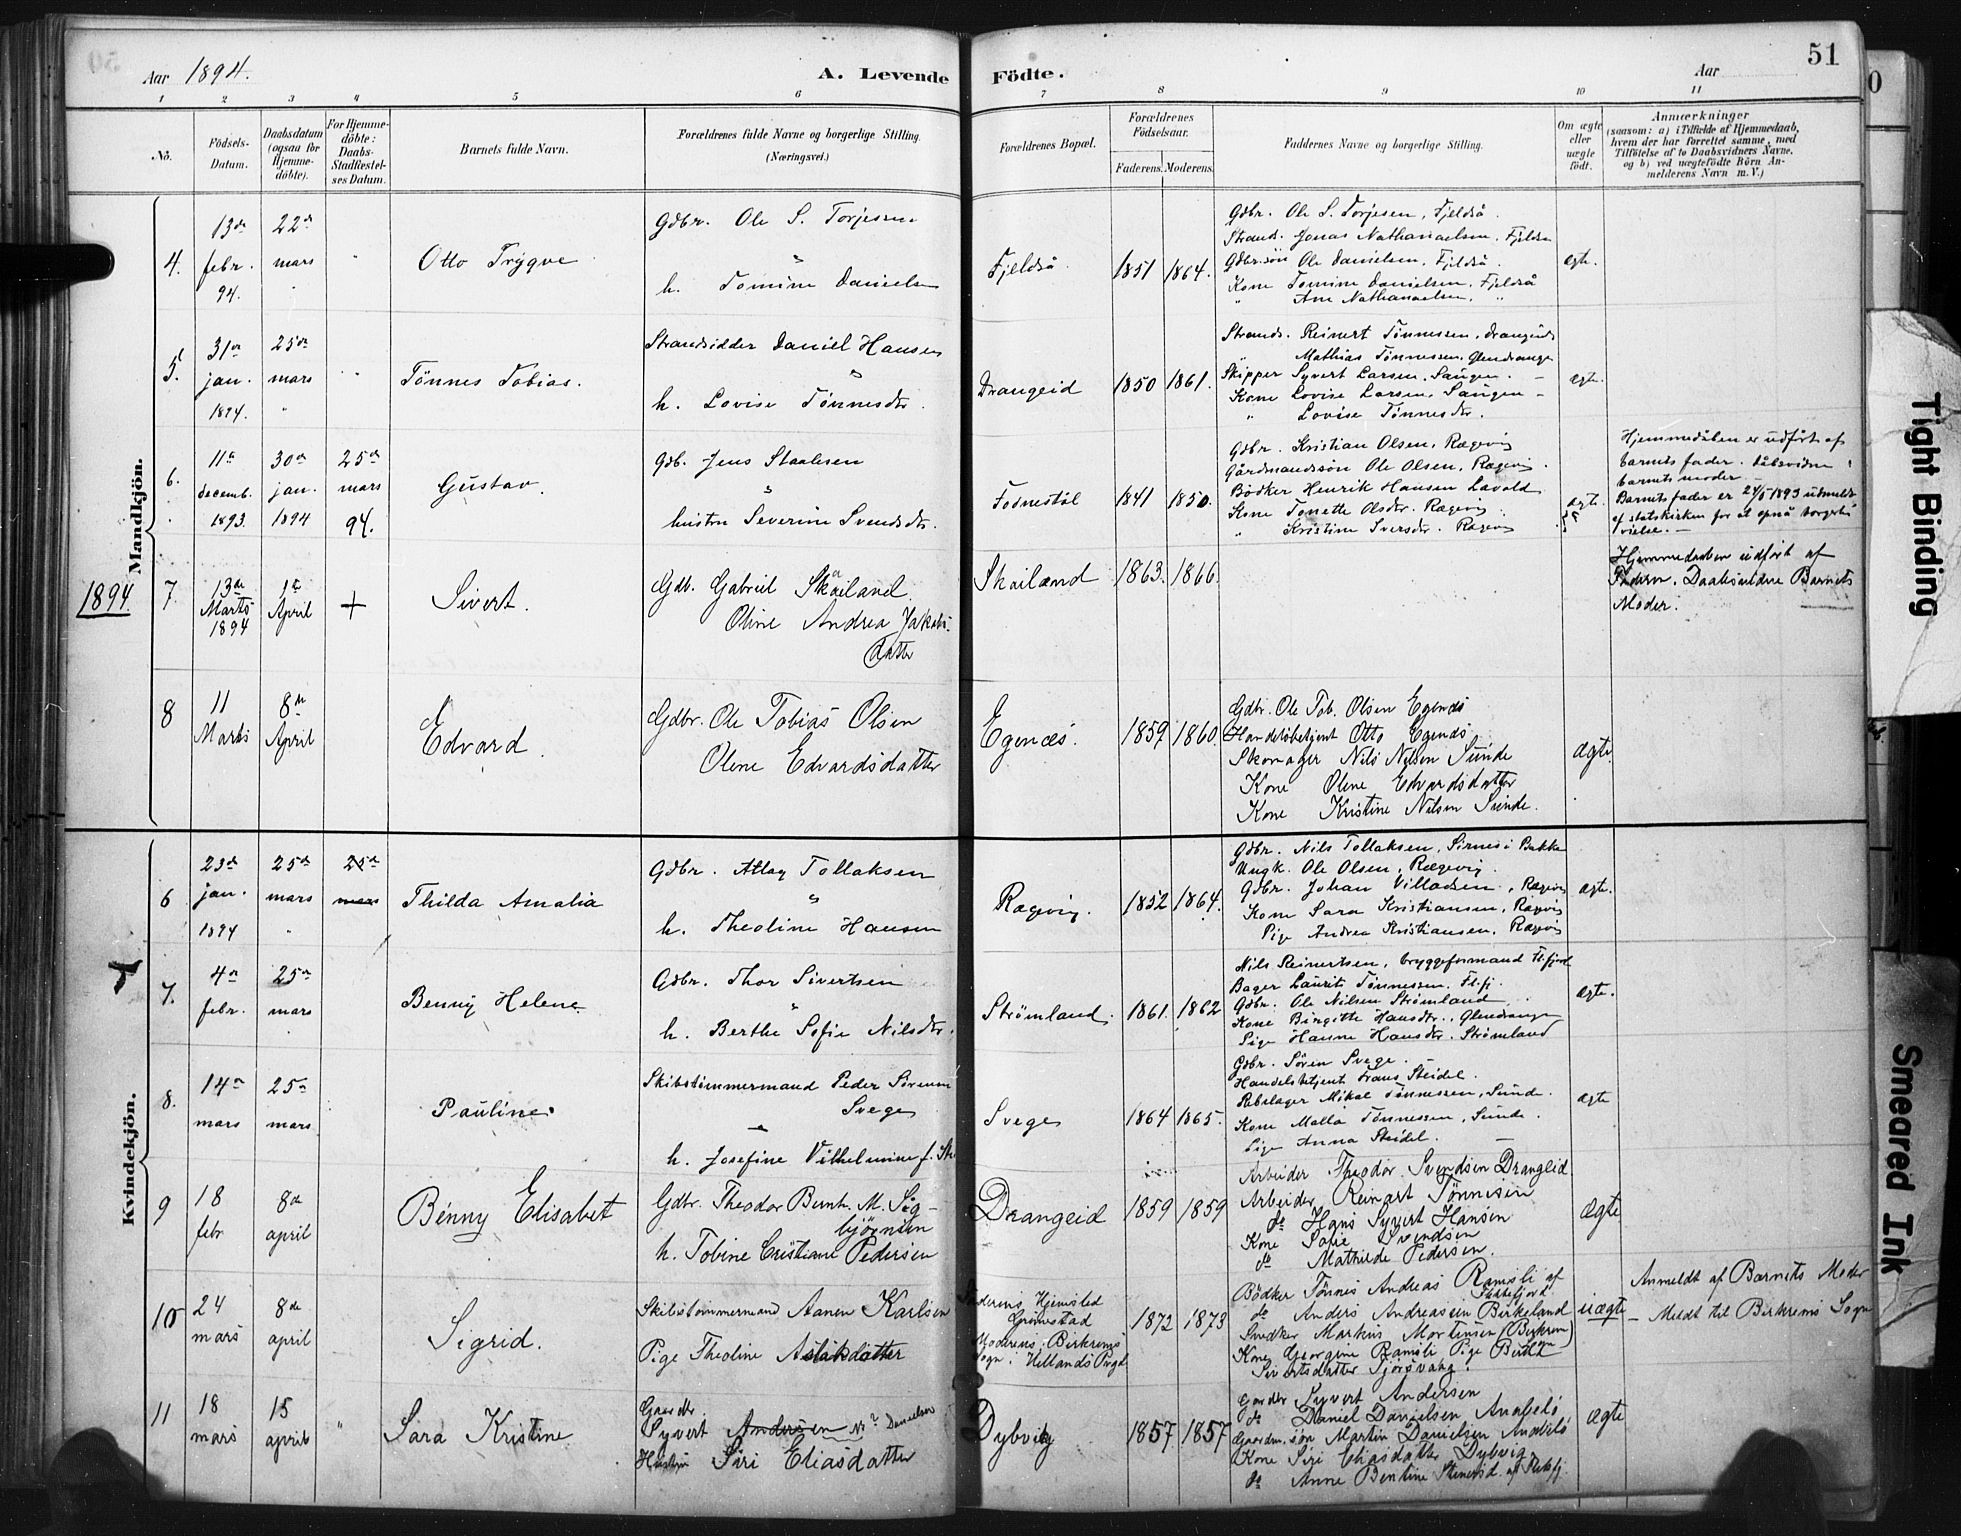 Aar 1894.
A. Levende
Födte.
Aar
51
1 2 3 4 5 6 7 8 9 10 11
No.
Födsels-Datum.
Daabsdatum (ogsaa for Hjemme-döbte).
For Hjemme-döbte: Daabs-Stadfæstel-ses Datum.
Barnets fulde Navn.
Forældrenes fulde Navne og borgerlige Stilling.
(Næringsvei.)
Forældrenes Bopæl.
Forældrenes Födselsaar.
Faderens. Moderens.
Faddernes Navne og borgerlige Stilling.
Om ægte eller uægte födt.
Anmærkninger
(saasom: a) i Tilfælde af Hjemmedaab,
hvem der har forrettet samme, med
Tilföielse af to Daabsvidners Navne,
og b) ved uægtefödte Börn An-
melderens Navn m. V.)
Mandkjön.
1894
4.
13de febr. 94.
22de mars
Otto Trygve
Gdbr. Ole S. Torjesen
h. Tomine Danielsen
Fjeldså
1851 1864.
Gdbr. Ole S. Torjesen, Fjeldså.
Strands. Jonas Nathanaelsen, Fjeldså
Gdbr.søn Ole Danielsen, Fjeldså.
Kone Tomine Danielsen, Fjeldså
" Ane Nathanaelsen, "
ægte.
5.
31te jan. 1894.
25de mars
Tönnes Tobias.
Strandsidder Daniel Hansen
h. Lovise Tönnesdtr.
Drangeid
1850 1861.
Strands. Reinert Tönnessen, Drangeid
" Mathias Tönnessen, Glendrange
Skipper Syvert Larsen, Saugen.
Kone Lovise Larsen, Saugen
" Lovise Tönnesdtr.
ægte.
6.
11te decemb. 1893.
30de jan. 1894
25de mars 94.
Gustav.
Gdb. Jens Staalesen
hustru Severine Svendsdtr.
Fodnestøl
1841 1850.
Gdbr. Kristian Olsen, Rægevig
Gårdmandssön Ole Olsen, Rægevig.
Bødker Henrik Hansen Lavold
Kone Tonette Olsdtr. Rægevig.
" Kristine Iversdtr. Rægevig
ægte.
Hjemmedåben er udført af
barnets fader. dåbsvidne:
barnets moder.
Barnets fader er 24/5 1893 udmeldt
af statskirken for at opnå borgerlig
vielse.
7.
13de Marts 1894
1te April
+
Sivert.
Gdb. Gabriel Skailand.
Oline Andrea Jakobs-
datter
Skailand
1863. 1866.
Hjemmedaaben udført af
Faderen. Daabsvidne Barnets
Moder.
8
11 Marts
8de April
Edvard.
Gdbr. Ole Tobias Olsen
Olene Edvardsdatter
Egenæs.
1859 1860.
Gdbr. Ole Tob. Olsen Egenæs
Handelsbetjent Otto Egenæs
Skomager Nils Nilsen Sunde
Kone Olene Edvardsdatter
Kone Kristine Nilsen Sunde.
ægte.
Kvindekjön.
6
23de jan. 1894
25de mars
25de mars
Thilda Amalia
Gdbr. Atlag Tollaksen
h. Theoline Hansen
Rægevig.
1852 1864.
Gdbr. Nils Tollaksen, Sirnes i Bakke
Ungk. Ole Olsen, Rægevig.
Gdbr. Johan Villadsen, Rægevig
Kone Sara Kristiansen, Rægevig
Pige Andrea Kristiansen, Rægevig
ægte.
7.
4de febr.
25de mars
Benny Helene
Gdbr. Thor Sivertsen
h. Berthe Sofie Nilsdtr.
Strømland.
1861. 1862
Nils Reinertsen, bryggeformand Fl.fjord
Bager Laurits Tönnessen. Fl.fj.
Gdbr. Ole Nilsen Strømland.
Kone Birgitte Hansdtr., Glendrange
Pige Hanne Hansdtr. Strømland
ægte.
8.
14de mars
25de mars.
Pauline.
Skibstömmermand Peder Sörensen
Svege
h. Josefine Vilhelmine f.
Svege
1864 1865.
Gdbr. Sören Svege.
Handelsbetjent Frans Steidel.
Rebslager Mikal Tönnessen, Sunde.
Kone Malla Tönnessen, Sunde.
Pige Anna Steidel.
ægte
9
18 febr
8de april
Benny Elisabet
Gdbr. Theodor Bernh. M. Sig-
bjørnsen
h. Tobine Cristiane Pedersen
Drangeid
1859 1859
Arbeider Theodor Svendsen Drangeid
Arbeider Reinart Tönnesen
do Hans Syvert Hansen
Kone Sofie Svendsen
do Mathilde Pedersen.
ægte
10
24 mars
8de april
Sigrid.
Skibstømmermand Aanen Karlsen
Pige Theoline Aslaksdatter
Faderens Hjemsted
Grimstad
Moderens: Birkrems
Sogn. Hellands Prgd.
1872 1873
Bödker Tönnes Andreas Ramsli af
Flekkefjord
do Anders Andreassen Birkeland
Snedker Markus Mortensen (Birkrem)
Kone Georgine Ramsli Pige Berthe
Sivertsdatter Tjørsvaag.
uægte
Anmeldt af Barnets Moder
- Meldt til Birkrems Sogn
11
18 mars
15 april
"
Sara Kristine
Gaardbr.
Syvert Andersen N.? Danielsen
Hustru Siri Eliasdatter
Dybvig
1857 1857
Gaardbr Syvert Andersen
do Daniel Danielsen Anabelø
Gaardm. søn Martin Danielsen Anabelø
Kone Siri Eliasdatter Dybvig
do Anne Bentine Stenersd. af Flekkfj.
ægte
Tight Binding
Smeared Ink